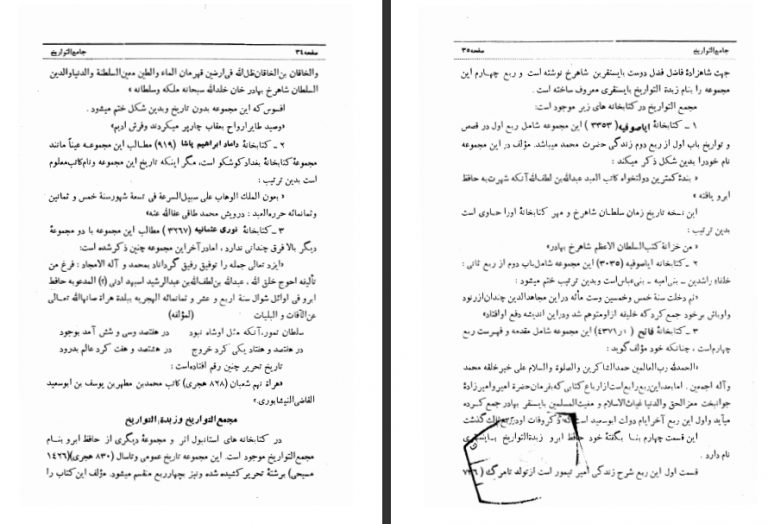 صفحه ۳۴
جامع التواریخ
والخاقان بن الخاقان ظل الله فی ارضین قهرمان الماء والطین معین السلطنة والدنیا والدین
السلطان شاهرخ بهادر خان خلدالله سبحانه ملکه وسلطانه »
افسوس که این مجموعه بدون تاریخ وبدین شکل ختم میشود .
«وصید طایر ارواح بعقاب چارپر میکردند وفرق ادیم»
۲ ــ کتابخانهٔ داماد ابراهیم پاشا (۹۱۹) مطالب این مجموعه عیناً مانند
مجموعهٔ کتابخانهٔ بغداد کوشکو است، مگر اینکه تاریخ این مجموعه ونام کاتب معلوم
است بدین ترتیب :
« بعون الملک الوهاب علی سبیل السرعة فی تسعة شهور سنة خمس و ثمانین
وثمانمائه حرره العبد : درویش محمد طاقی عفاالله عنه»
۳ ــ کتابخانهٔ نوری عثمانیه (۳۲۶۷) مطالب این مجموعه با دو مجموعهٔ
دیگر بالا فرق چندانی ندارد ، اما در آخر این مجموعه چنین ذکر شده است:
«ایزد تعالی جمله را توفیق رفیق گرداناد بمحمد و آله الامجاد : فرغ من
تألیفه احوج خلق الله ، عبدالله بن لطف الله بن عبدالرشید اسبهد ادنی (؟) المدعو به حافظ
ابرو فی اوائل شوال سنة اربع و عشر و ثمانمائه الهجریه ببلدة هراة صانهاالله تعالی
عن الآفات و البلیات (لمؤلفه)
سلطان تمور، آنکه مثل او شاه نبود در هفتصد وسی و شش آمد بوجود
در هفتصد و هفتاد یکی کرد خروج در هشتصد و هفت کرد عالم بدرود
تاریخ تحریر چنین رقم افتاده است :
«هراة نهم شعبان (۸۲۸ هجری) کاتب محمد بن مطهر بن یوسف بن ابوسعید
القاضی النیشابوری.»
مجمع التواریخ وزبدة التواریخ
در کتابخانه های استانبول اثر و مجموعهٔ دیگری از حافظ ابرو بنام
مجمع التواریخ موجود است. این مجموعه تاریخ عمومی وتاسال (۸۳۰ هجری) (۱۴۲۶
مسیحی) برشتهٔ تحریر کشیده شده ونیز بچهار ربع منقسم میشود. مؤلف این کتاب را
جامع التواریخ
صفحه ۳۵
جهت شاهزادهٔ فاضل فضل دوست بایسنقر بن شاهرخ نوشته است و ربع چهارم این
مجموعه را بنام زبدة التواریخ بایسنقری معروف ساخته است .
مجمع التواریخ در کتابخانه های زیر موجود است:
۱ ــ کتابخانهٔ ایاصوفیه (۳۳۵۳) این مجموعه شامل ربع اول در قصص
و تواریخ باب اول از ربع دوم زندگی حضرت محمد میباشد. مؤلف در این مجموعه
نام خود را بدین شکل ذکر میکند :
« بندهٔ کمترین دولتخواه کاتب العبد عبدالله بن لطف الله آنکه شهرت به حافظ
ابرو یافته »
این نسخه تاریخ زمان سلطان شاهرخ و مهر کتابخانهٔ اورا حاوی است
بدین ترتیب :
« من خزانة کتب السلطان الاعظم شاهرخ بهادر»
۲ ــ کتابخانه ایاصوفیه (۳۰۳۵) این مجموعه شامل باب دوم از ربع ثانی :
خلفاء راشدین ــ بنی امیه ــ بنی عباس است وبدین ترتیب ختم میشود :
«تم دخلت سنة خمس وخمسین وست مأئه در این مجاهدالدین چندان از رنود
واوباش بر خود جمع کرد که خلیفه از اومتوهم شد ودر این اندیشه دفع او افتاد»
۳ ــ کتابخانهٔ فاتح (۴۳۷۱ر۱) این مجموعه شامل مقدمه و فهرست ربع
چهارم است، چنانکه خود مؤلف گوید :
«الحمدلله رب العالمین حمدالشاکرین والصلوة والسلام علی خیر خلقه محمد
وآله اجمعین . اما بعد این ربع رابع است از ارباع کتابی که بفرمان حضرة امیر وامیرزادهٔ
جوانبخت معز الحق والدنیا غیاث الاسلام و مغیث المسلمین بایسنقر بهادر جمع کرده
میآید واول این ربع آخر ایام دولت ابوسعید است که ذکر وفات اودر ربع ثالث گذشت
این قسمت چهارم بنا بگفتهٔ خود حافظ ابرو زبدة التواریخ بایسنقری
نام دارد .
قسمت اول این ربع شرح زندگی امیر تیمور است از تولد تامرگ (۷۳۶